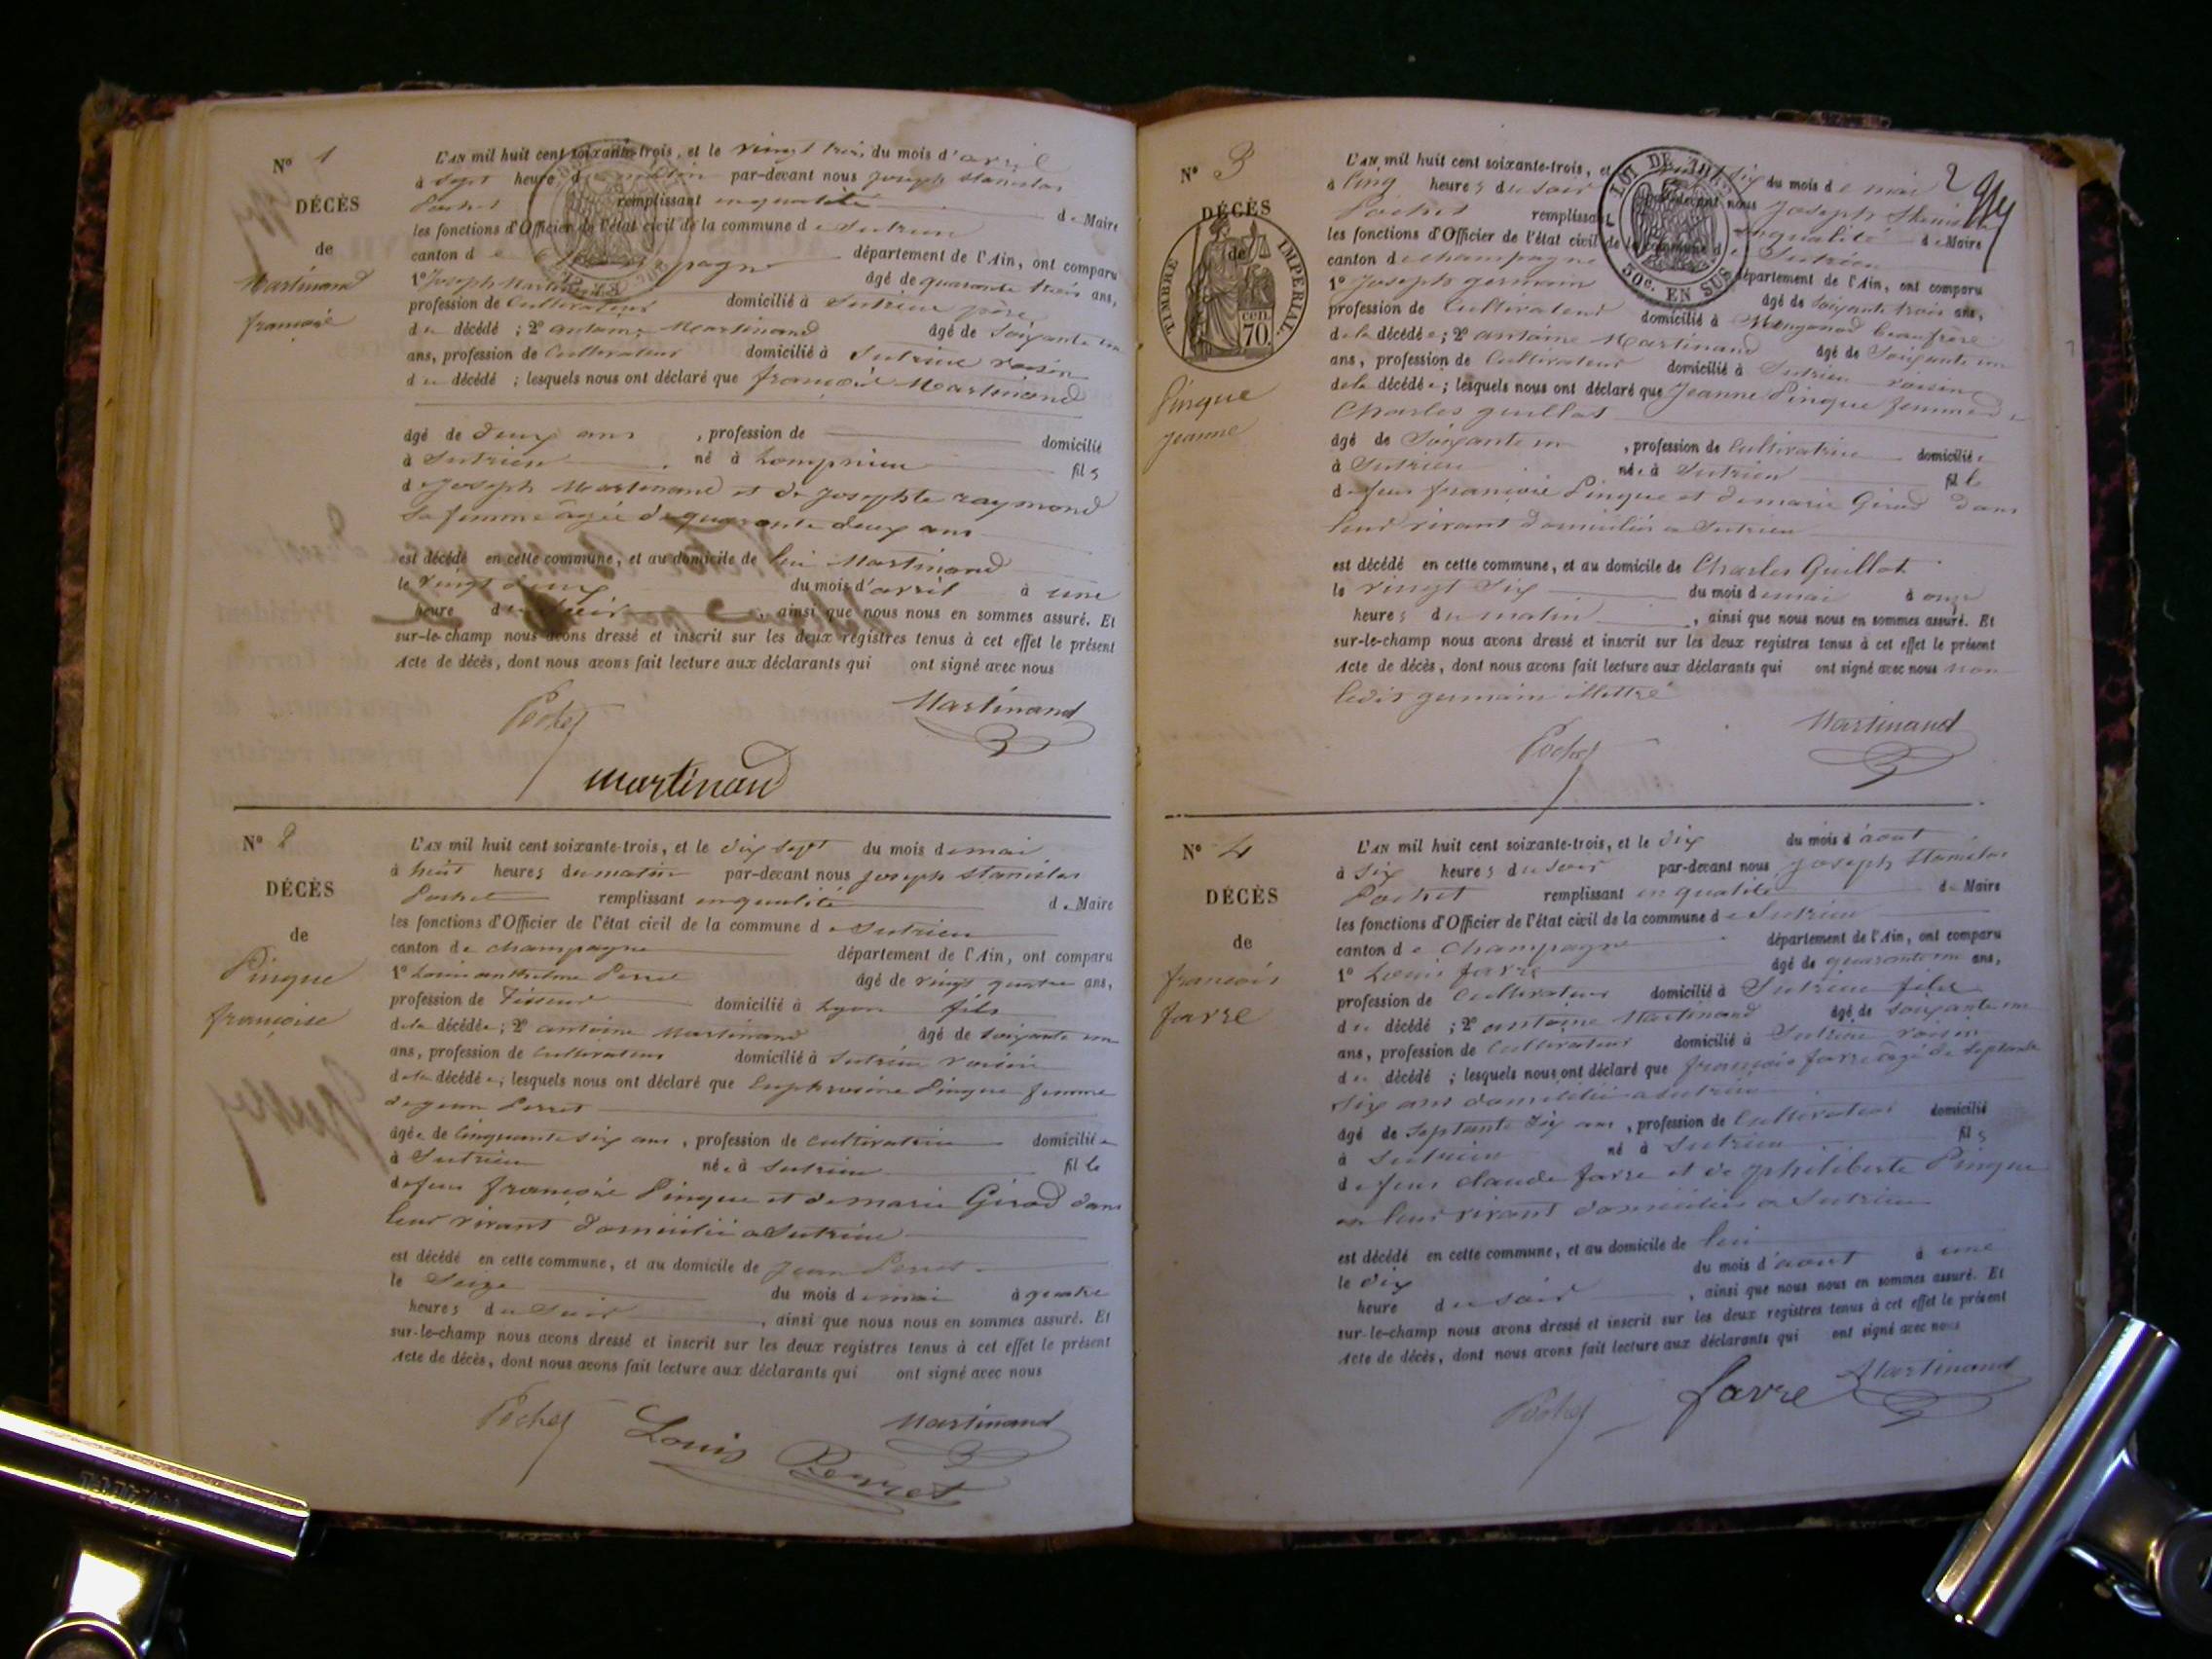 N° 1
DÉCÈS
de
Martinand
françois
L'AN mil huit cent soixante-trois, et le vingt trois du mois d'avril
à sept heures du matin par-devant nous joseph stanislas
Pochet remplissant enqualité de Maire
les fonctions d'Officier de l'état civil de la commune de Sutrieu
canton de Champagne département de l'Ain, ont comparu
1° Joseph Martinand âgé de quarante trois ans,
profession de Cultivateur domicilié à Sutrieu père
du décédé ; 2° antoine Martinand âgé de Soixante un
ans, profession de Cultivateur domicilié à Sutrieu voisin
du décédé ; lesquels nous ont déclaré que françois Martinand
âgé de deux ans , profession de domicilié
à Sutrieu , né à Lompnieu fils
de joseph Martinand et de josephte raymond
Sa femme agée de quarante deux ans
est décédé en cette commune, et au domicile de lui Martinand
le vingt deux du mois d'avril à une
heure du Soir , ainsi que nous nous en sommes assuré. Et
sur-le-champ nous avons dressé et inscrit sur les deux registres tenus à cet effet le présent
Acte de décès, dont nous avons fait lecture aux déclarants qui ont signé avec nous
Pochet Martinand
martinand
N° 2
DÉCÈS
de
Pingue
françoise
L'AN mil huit cent soixante-trois, et le dix sept du mois de mai
à huit heures du matin par-devant nous joseph stanislas
Pochet remplissant enqualité de Maire
les fonctions d'Officier de l'état civil de la commune de Sutrieu
canton de champagne département de l'Ain, ont comparu
1° Louis anthelme Perret âgé de vingt quatre ans,
profession de Tisseur domicilié à Lyon fils
de la décédée ; 2° antoine Martinand âgé de Soixante un
ans, profession de Cultivateur domicilié à Sutrieu voisin
de la décédée ; lesquels nous ont déclaré que Euphrosine Pingue femme
de jean Perret
âgée de Cinquante six ans , profession de cultivatrice domiciliée
à Sutrieu née à Sutrieu fille
de feu françois Pingue et de marie Girod dans
leur vivant domicilié a Sutrieu
est décédé en cette commune, et au domicile de jean Perret
le Seize du mois de mai à quatre
heures du Soir , ainsi que nous nous en sommes assuré. Et
sur-le-champ nous avons dressé et inscrit sur les deux registres tenus à cet effet le présent
Acte de décès, dont nous avons fait lecture aux déclarants qui ont signé avec nous
Pochet Louis Perret Martinand
N° 3
DÉCÈS
de
TIMBRE IMPÉRIAL
70 cen.
Pingue
jeanne
LOI DE
50c. EN SUS
2
L'AN mil huit cent soixante-trois, et le vingt six du mois de mai
à Cinq heures du Soir par-devant nous Joseph Stanislas
Pochet remplissant enqualité de Maire
les fonctions d'Officier de l'état civil de la commune de Sutrieu
canton de champagne département de l'Ain, ont comparu
1° Joseph germain âgé de Soixante trois ans,
profession de Cultivateur domicilié à beaufrère
de la décédée ; 2° antoine Martinand âgé de Soixante un
ans, profession de Cultivateur domicilié à Sutrieu voisin
de la décédée ; lesquels nous ont déclaré que Jeanne Pingue femme de
Charles guillot
âgé de Soixante un , profession de Cultivatrice domiciliée
à Sutrieu née à Sutrieu fille
de feu françois Pingue et de marie Girod dans
leur vivant domiciliés a Sutrieu
est décédé en cette commune, et au domicile de Charles Guillot
le vingt six du mois de mai à onze
heures du matin , ainsi que nous nous en sommes assuré. Et
sur-le-champ nous avons dressé et inscrit sur les deux registres tenus à cet effet le présent
Acte de décès, dont nous avons fait lecture aux déclarants qui ont signé avec nous non
ledit germain illettré
Pochet Martinand
N° 4
DÉCÈS
de
francois
favre
L'AN mil huit cent soixante-trois, et le dix du mois d'aout
à Six heures du soir par-devant nous joseph Stanislas
Pochet remplissant en qualité de Maire
les fonctions d'Officier de l'état civil de la commune de Sutrieu
canton de Champagne département de l'Ain, ont comparu
1° Louis favre âgé de quarante un ans,
profession de Cultivateur domicilié à Sutrieu fils
du décédé ; 2° antoine Martinand âgé de soixante un
ans, profession de Cultivateur domicilié à Sutrieu voisin
du décédé ; lesquels nous ont déclaré que françois favre âgé de Septante
Six ans domicilié a sutrieu
âgé de Septante Six ans , profession de Cultivateur domicilié
à Sutrieu né à Sutrieu fils
de feus claude favre et de philiberte Pingue
en leur vivant domiciliés a Sutrieu
est décédé en cette commune, et au domicile de lui
le dix du mois d'aout à une
heure du soir , ainsi que nous nous en sommes assuré. Et
sur-le-champ nous avons dressé et inscrit sur les deux registres tenus à cet effet le présent
Acte de décès, dont nous avons fait lecture aux déclarants qui ont signé avec nous
Pochet favre Martinand